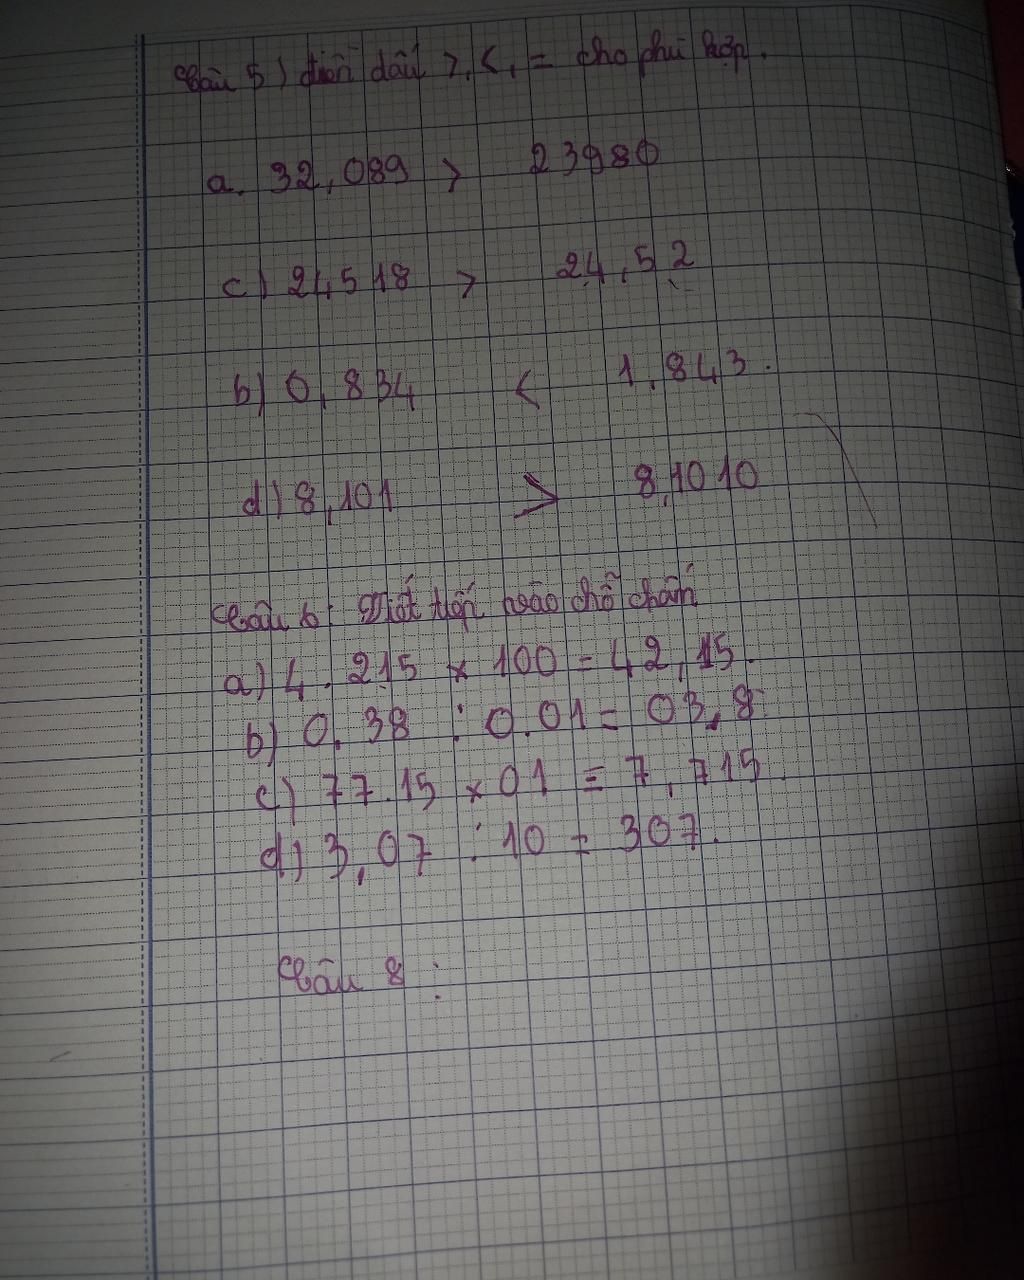 Câu 5) điền dấu >, <, = cho phù hợp.
a. 32,089 > 23980
c) 24518 > 24,52
b) 0,834 < 1,843.
d) 8,101 > 8,1010
Câu 6: Viết tiếp vào chỗ chấm
a) 4.215 x 100 = 42,15.
b) 0.38 : 0.01 = 03,8
c) 77.15 x 01 = 7,715
d) 3,07 : 10 = 307.
Câu 8 :